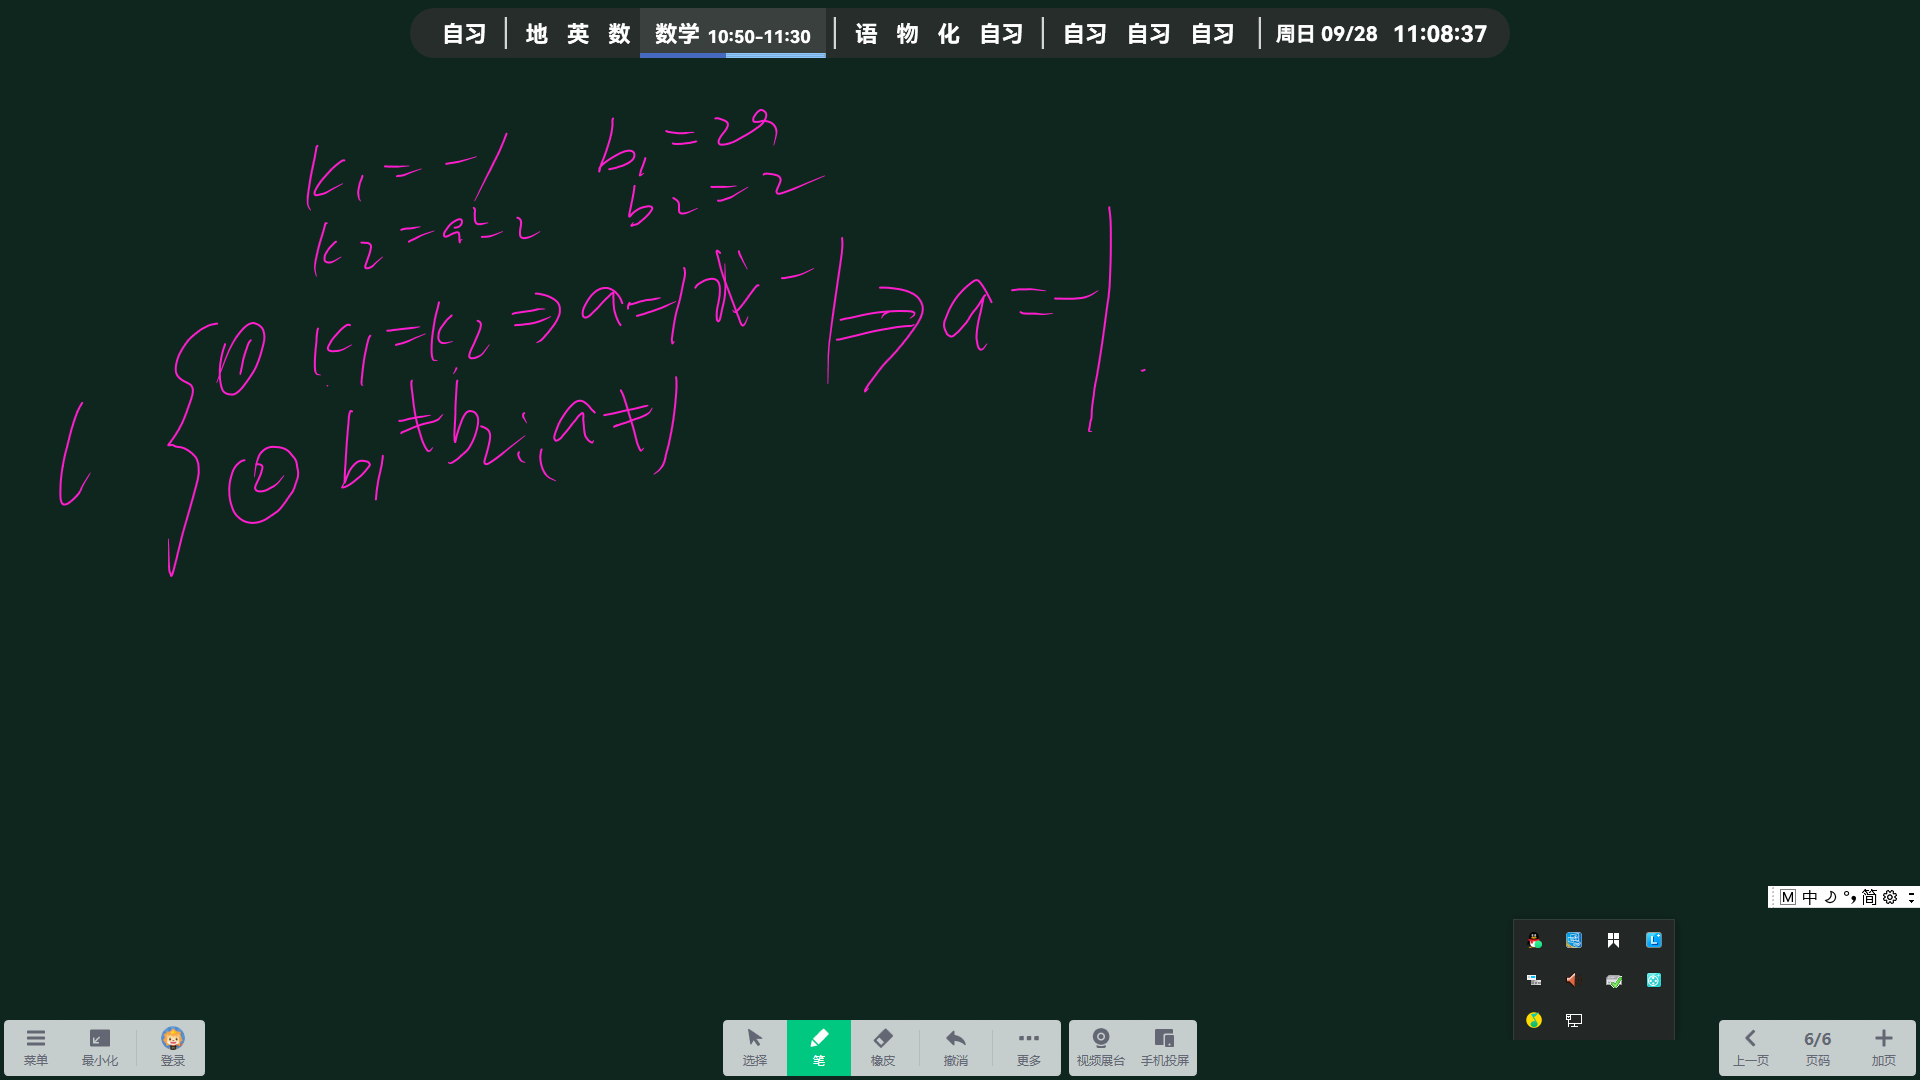 自习 | 地 英 数 数学 10:50-11:30 | 语 物 化 自习 | 自习 自习 自习 | 周日 09/28 11:08:37
k₁=-1 b₁=2a
k₂=a²-2 b₂=2
① k₁=k₂⇒a=1或-1⇒a=-1.
② b₁≠b₂∴a≠1
M 中 °, 简
菜单 最小化 登录 选择 笔 橡皮 撤消 更多 视频展台 手机投屏 上一页 6/6 页码 加页